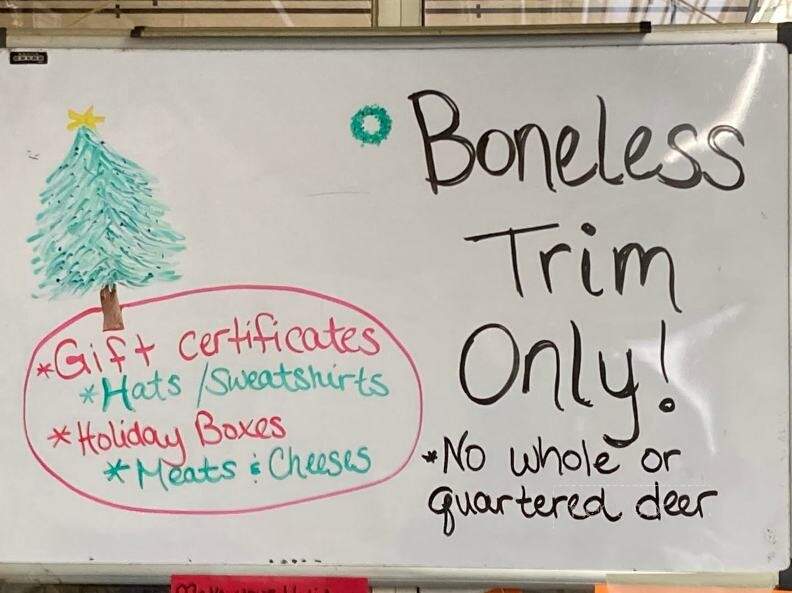 Boneless
Trim
Only!
*No whole or
quartered deer
*Gift certificates
*Hats / Sweatshirts
*Holiday Boxes
*Meats & Cheeses